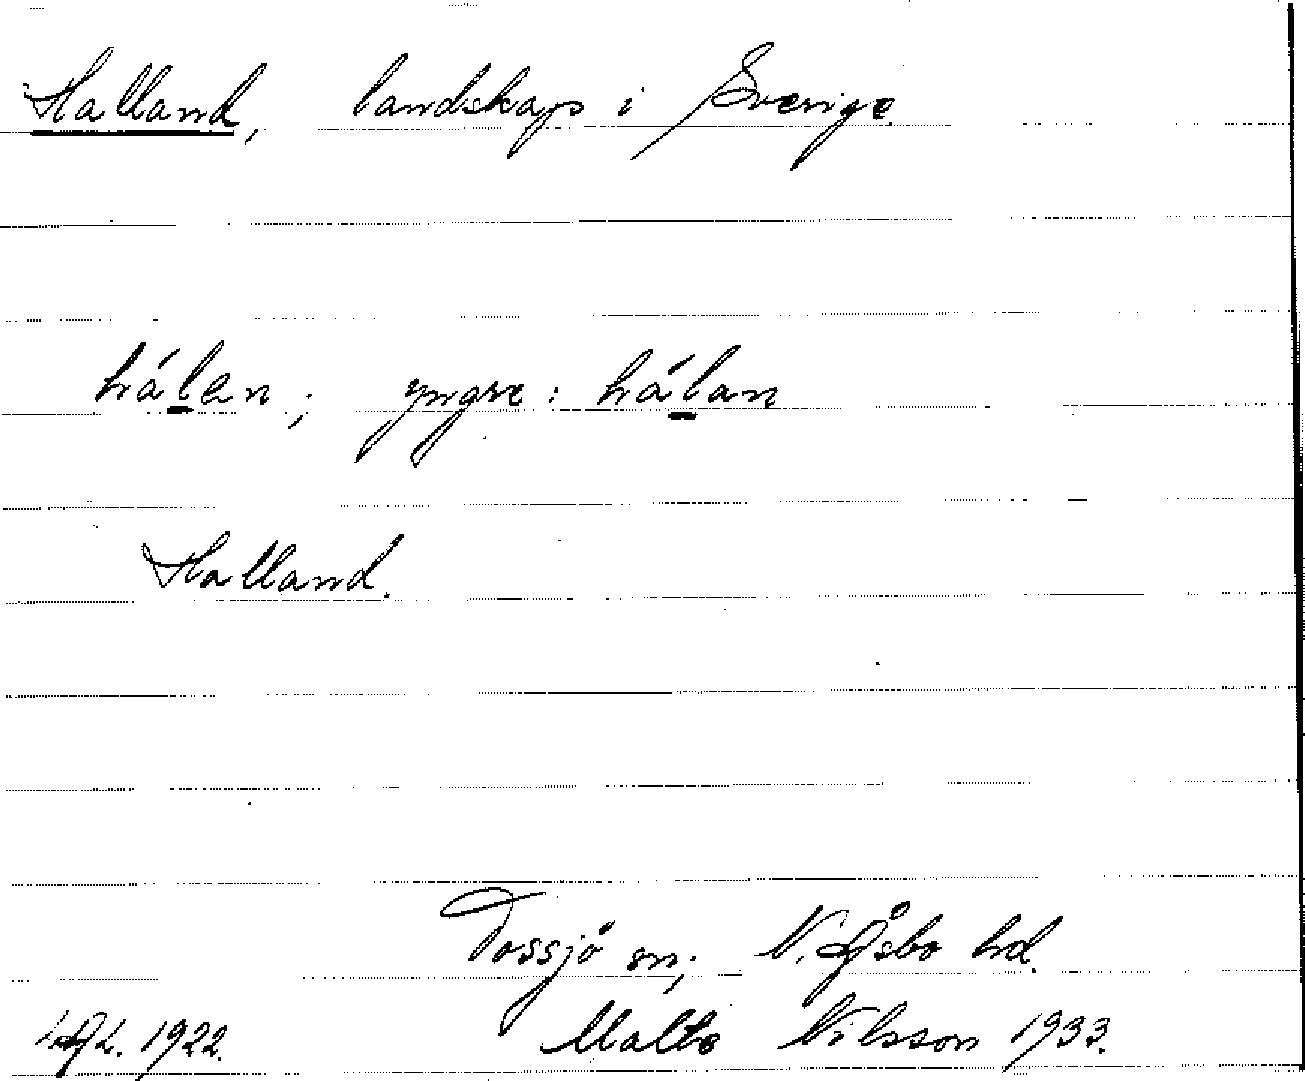 Halland, landskap i Sverige
hálen; yngre: hálan
Halland.
Tossjö sn; N. Åsbo hd.
1922. Malte Nilsson 1933.